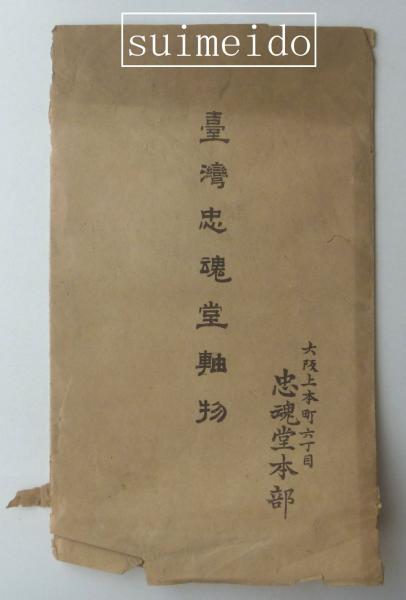 suimeido
臺灣忠魂堂軸物
大阪上本町六丁目
忠魂堂本部